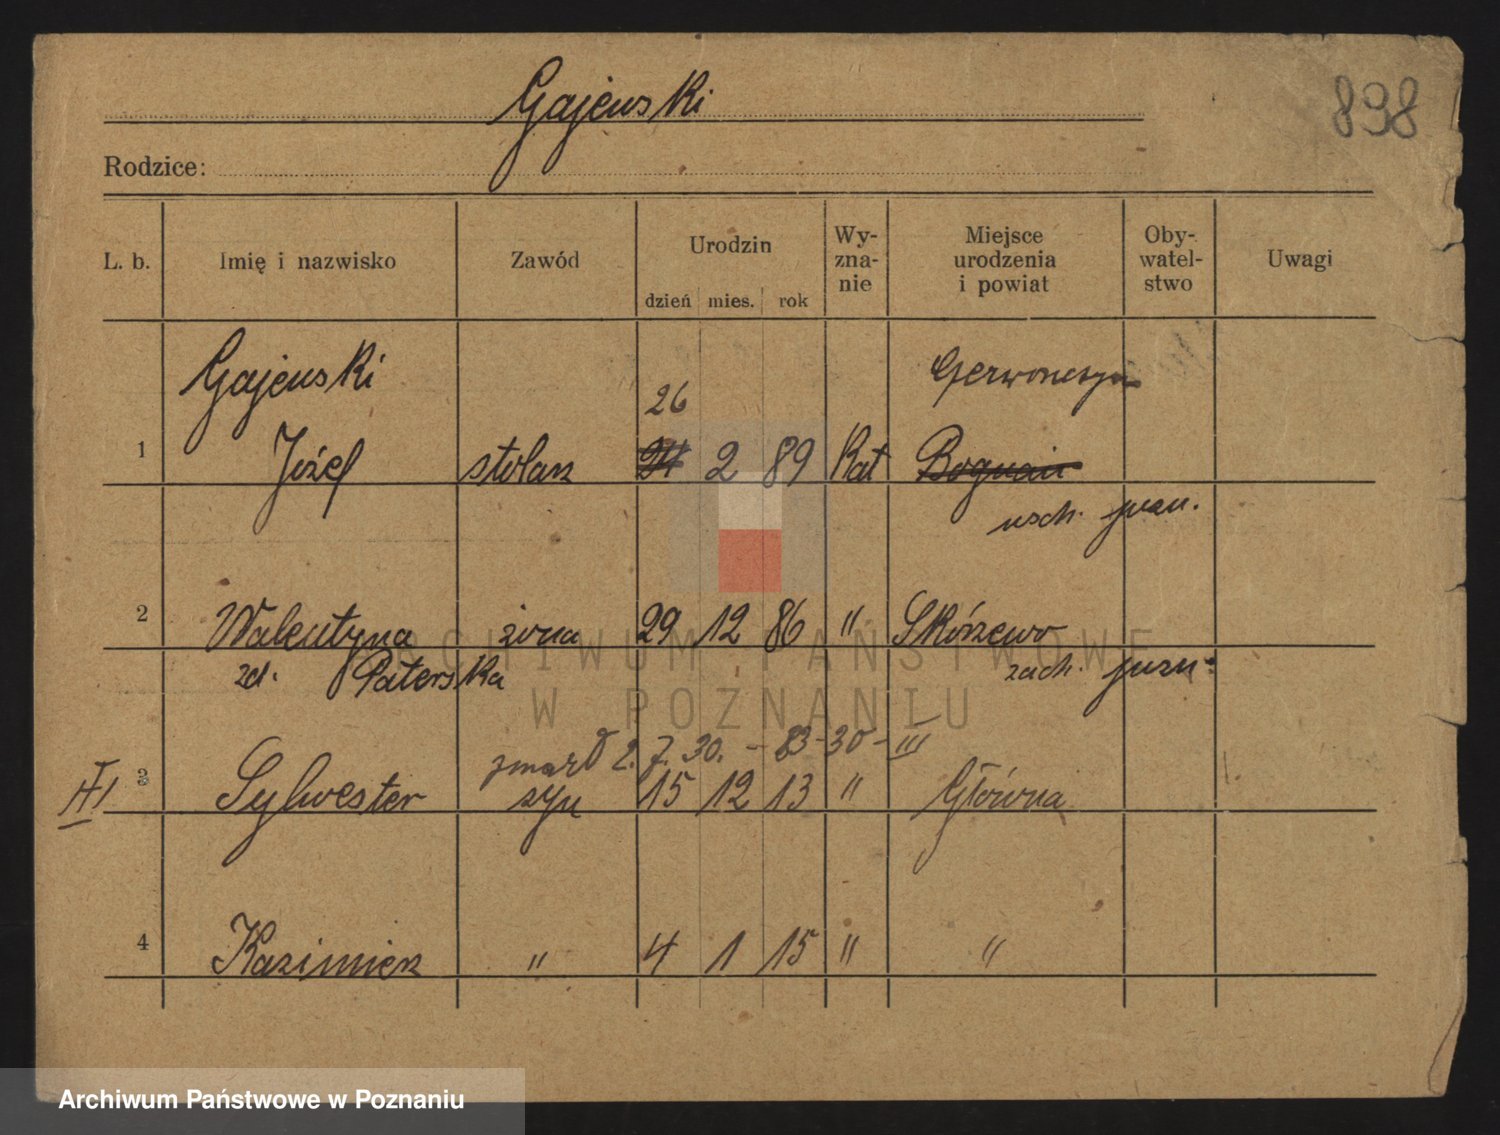 Gajewski
898
Rodzice:
L. b. Imię i nazwisko Zawód Urodzin dzień mies. rok Wy-zna-nie Miejsce urodzenia i powiat Oby-watel-stwo Uwagi
Gajewski
26
1 Józef stolarz 24 2 89 Kat
wsch. pozn.
2 Walentyna żona 29 12 86 " Skórzewo
zd. Paterska zach. pozn.
zmarł 2. 7. 30. - 83-30-III
3 Sylwester syn 15 12 13 " Główna
4 Kazimierz " 4 1 15 " "
ARCHIWUM PAŃSTWOWE
W POZNANIU
Archiwum Państwowe w Poznaniu